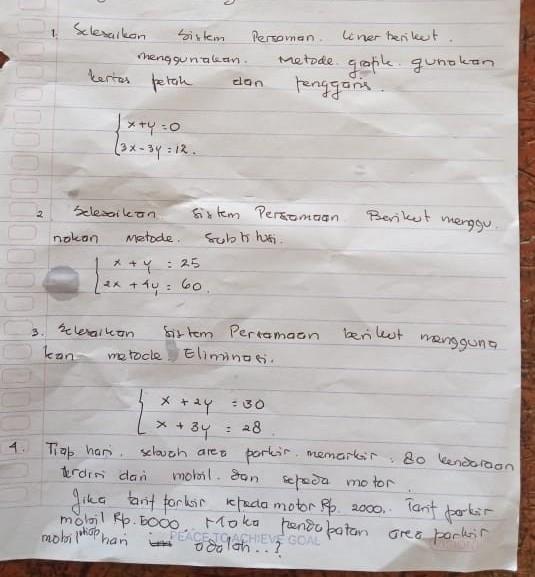 1. Selesaikan Sistem Persaman. Linier berikut.
menggunakan. Metode. grapik. gunakan
kertas petak dan Penggaris.
x+y=0
3x-3y=12.
2 Selesaikan Sistem Persamaan Berikut menggu
nakan Metode. Subtitusi.
x + y = 25
2x + 4y = 60.
3. Selesaikan Sistem Persamaan berikut mengguna
kan metode Eliminasi.
x + 2y = 30
x + 3y = 28.
4. Tiap hari. sebuah area parkir. memarkir. 80 kendaraan
terdiri dari mobil. dan sepeda motor.
Jika tarif parkir sepeda motor Rp. 2000,. Tarif parkir
mobil Rp. 5000. Maka pendapatan area parkir
mobil tiap hari adalah..?
PEACE TO ACHIEVE GOAL